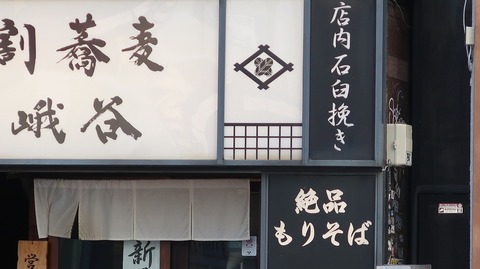 割蕎麦
峨谷
店内石臼挽き
絶品
もりそば
営
新